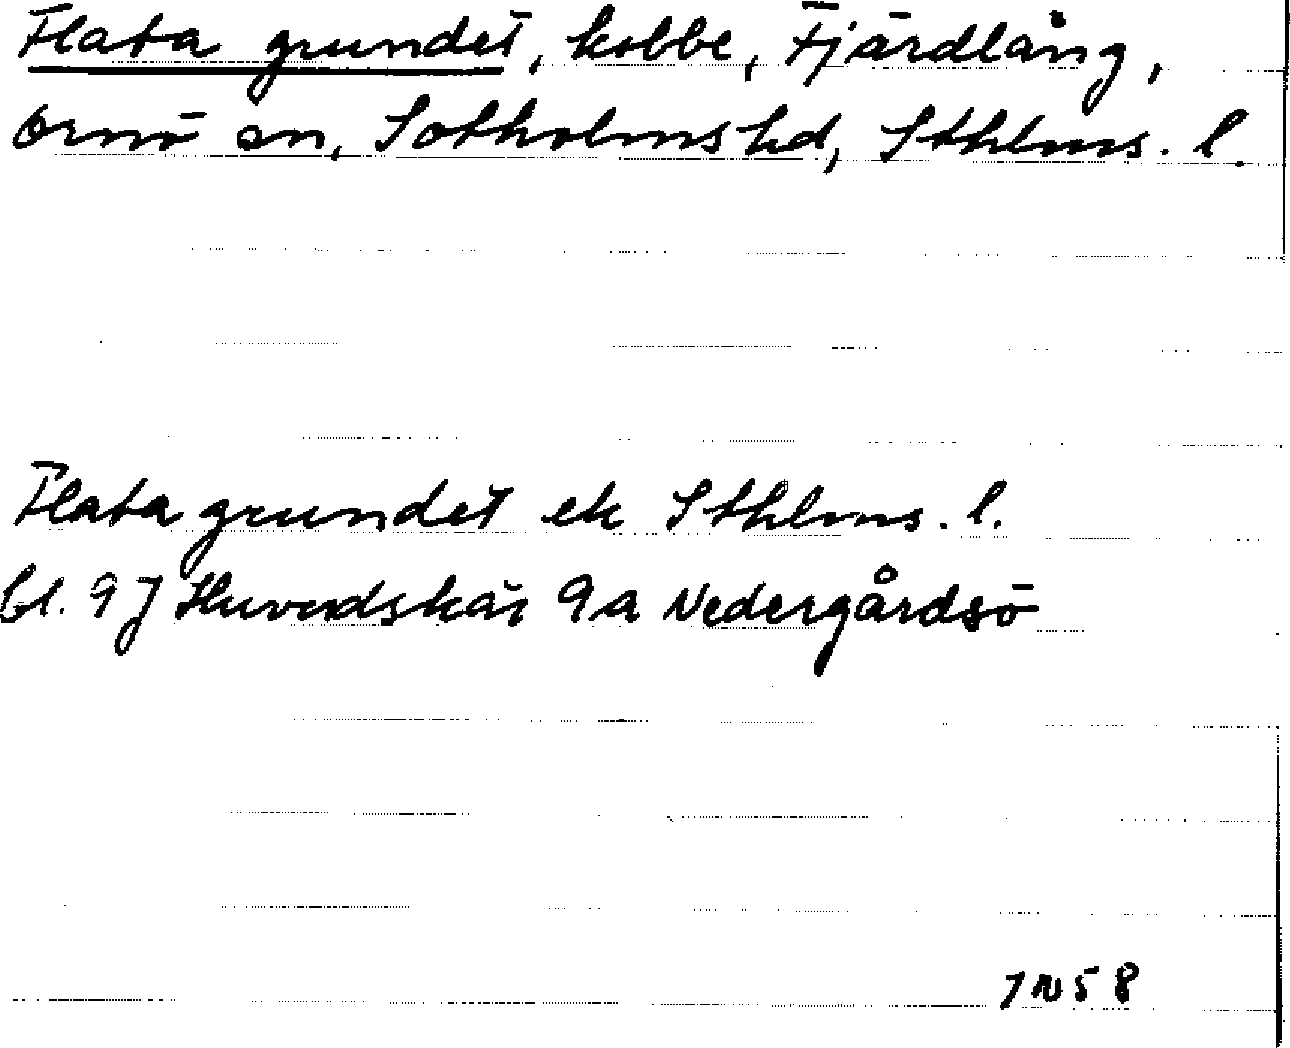 Flata grundet, kobbe, Fjärdlång,
Ornö sn, Sotholms hd, Sthlms. l.
Flata grundet ek Sthlms. l.
bl. 9J Huvudskär 9a Nedergårdsö
7 N 5 8